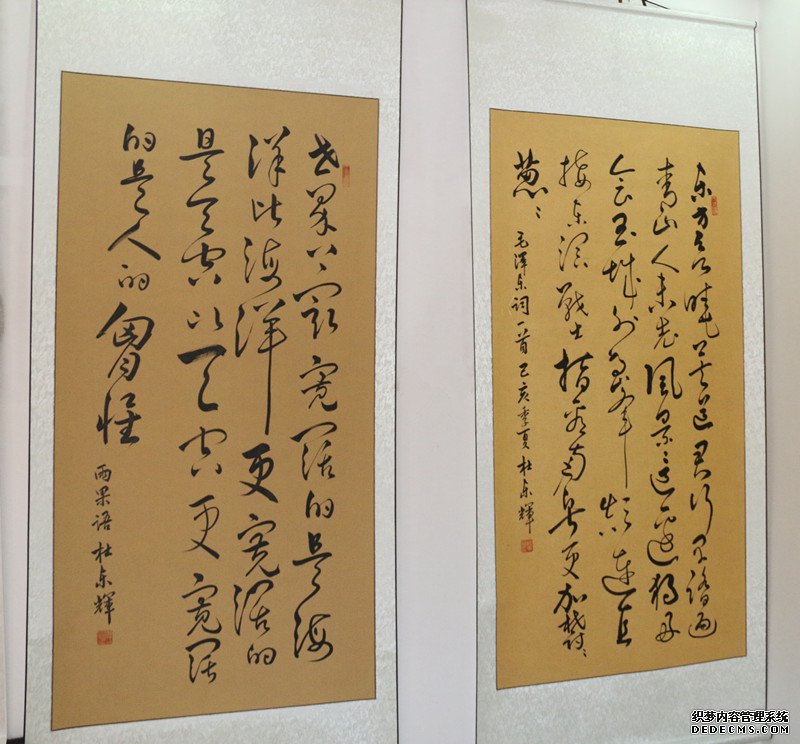 世界上最宽阔的是海
洋比海洋更宽阔的
是天空比天空更宽阔
的是人的胸怀
雨果语 杜东輝
东方欲晓莫道君行早踏遍
青山人未老风景这边独好
会昌城外高峰颠连直
接东溟战士指看南粤更加郁郁
葱葱
毛泽东词一首 己亥季夏 杜东輝
织梦内容管理系统
DEDECMS.COM